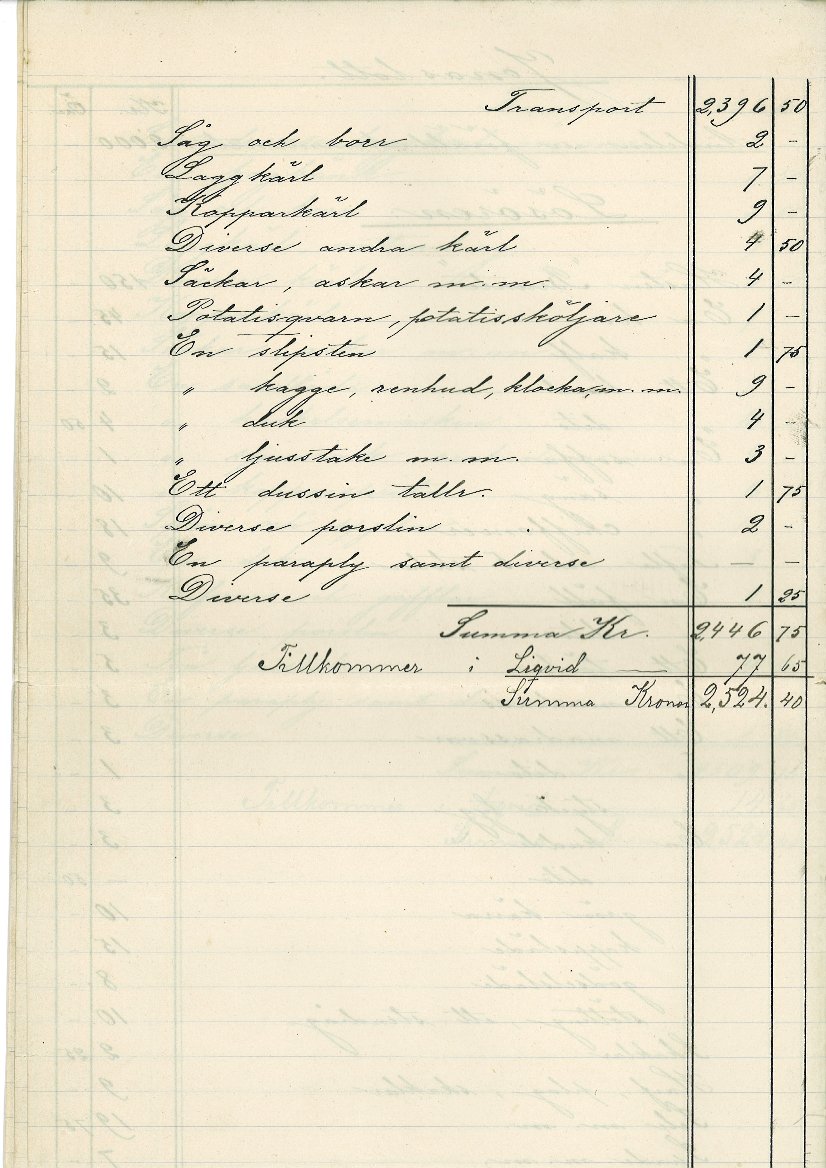 Transport 2,396 50
Såg och borr 2 -
Laggkärl 7 -
Kopparkärl 9 -
Diverse andra kärl 4 50
Säckar, askar m. m. 4 -
Potatisqvarn, potatissköljare 1 -
En slipsten 1 75
" kagge, renhud, klocka, m. m. 9 -
" duk 4 -
" ljusstake m. m. 3 -
Ett dussin tallr. 1 75
Diverse porslin 2 -
En paraply samt diverse - -
Diverse 1 25
Summa Kr. 2,446 75
Tillkommer i Liqvid — 77 65
Summa Kronor 2,524. 40